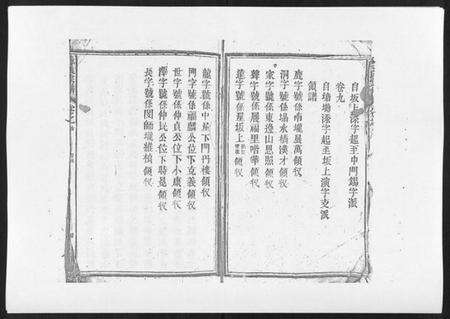 自坂上深字起至中門錫字派
卷九
自塘塝添字起至坂上演字支派
領譜
鹿字號係南壠晨萬領收
洞字號係塌水橋漢才領收
家字號係東邊山思照領收
聲字號係展福里啼華領收
遠字號係星坂上領收
龍字號係中星下門丙樓領收
門字號係福麟公位下克義領收
世字號係仲貞公位下小康領收
澤字號係仲玩公位下時晃領收
長字號係閔師壠維楨領收